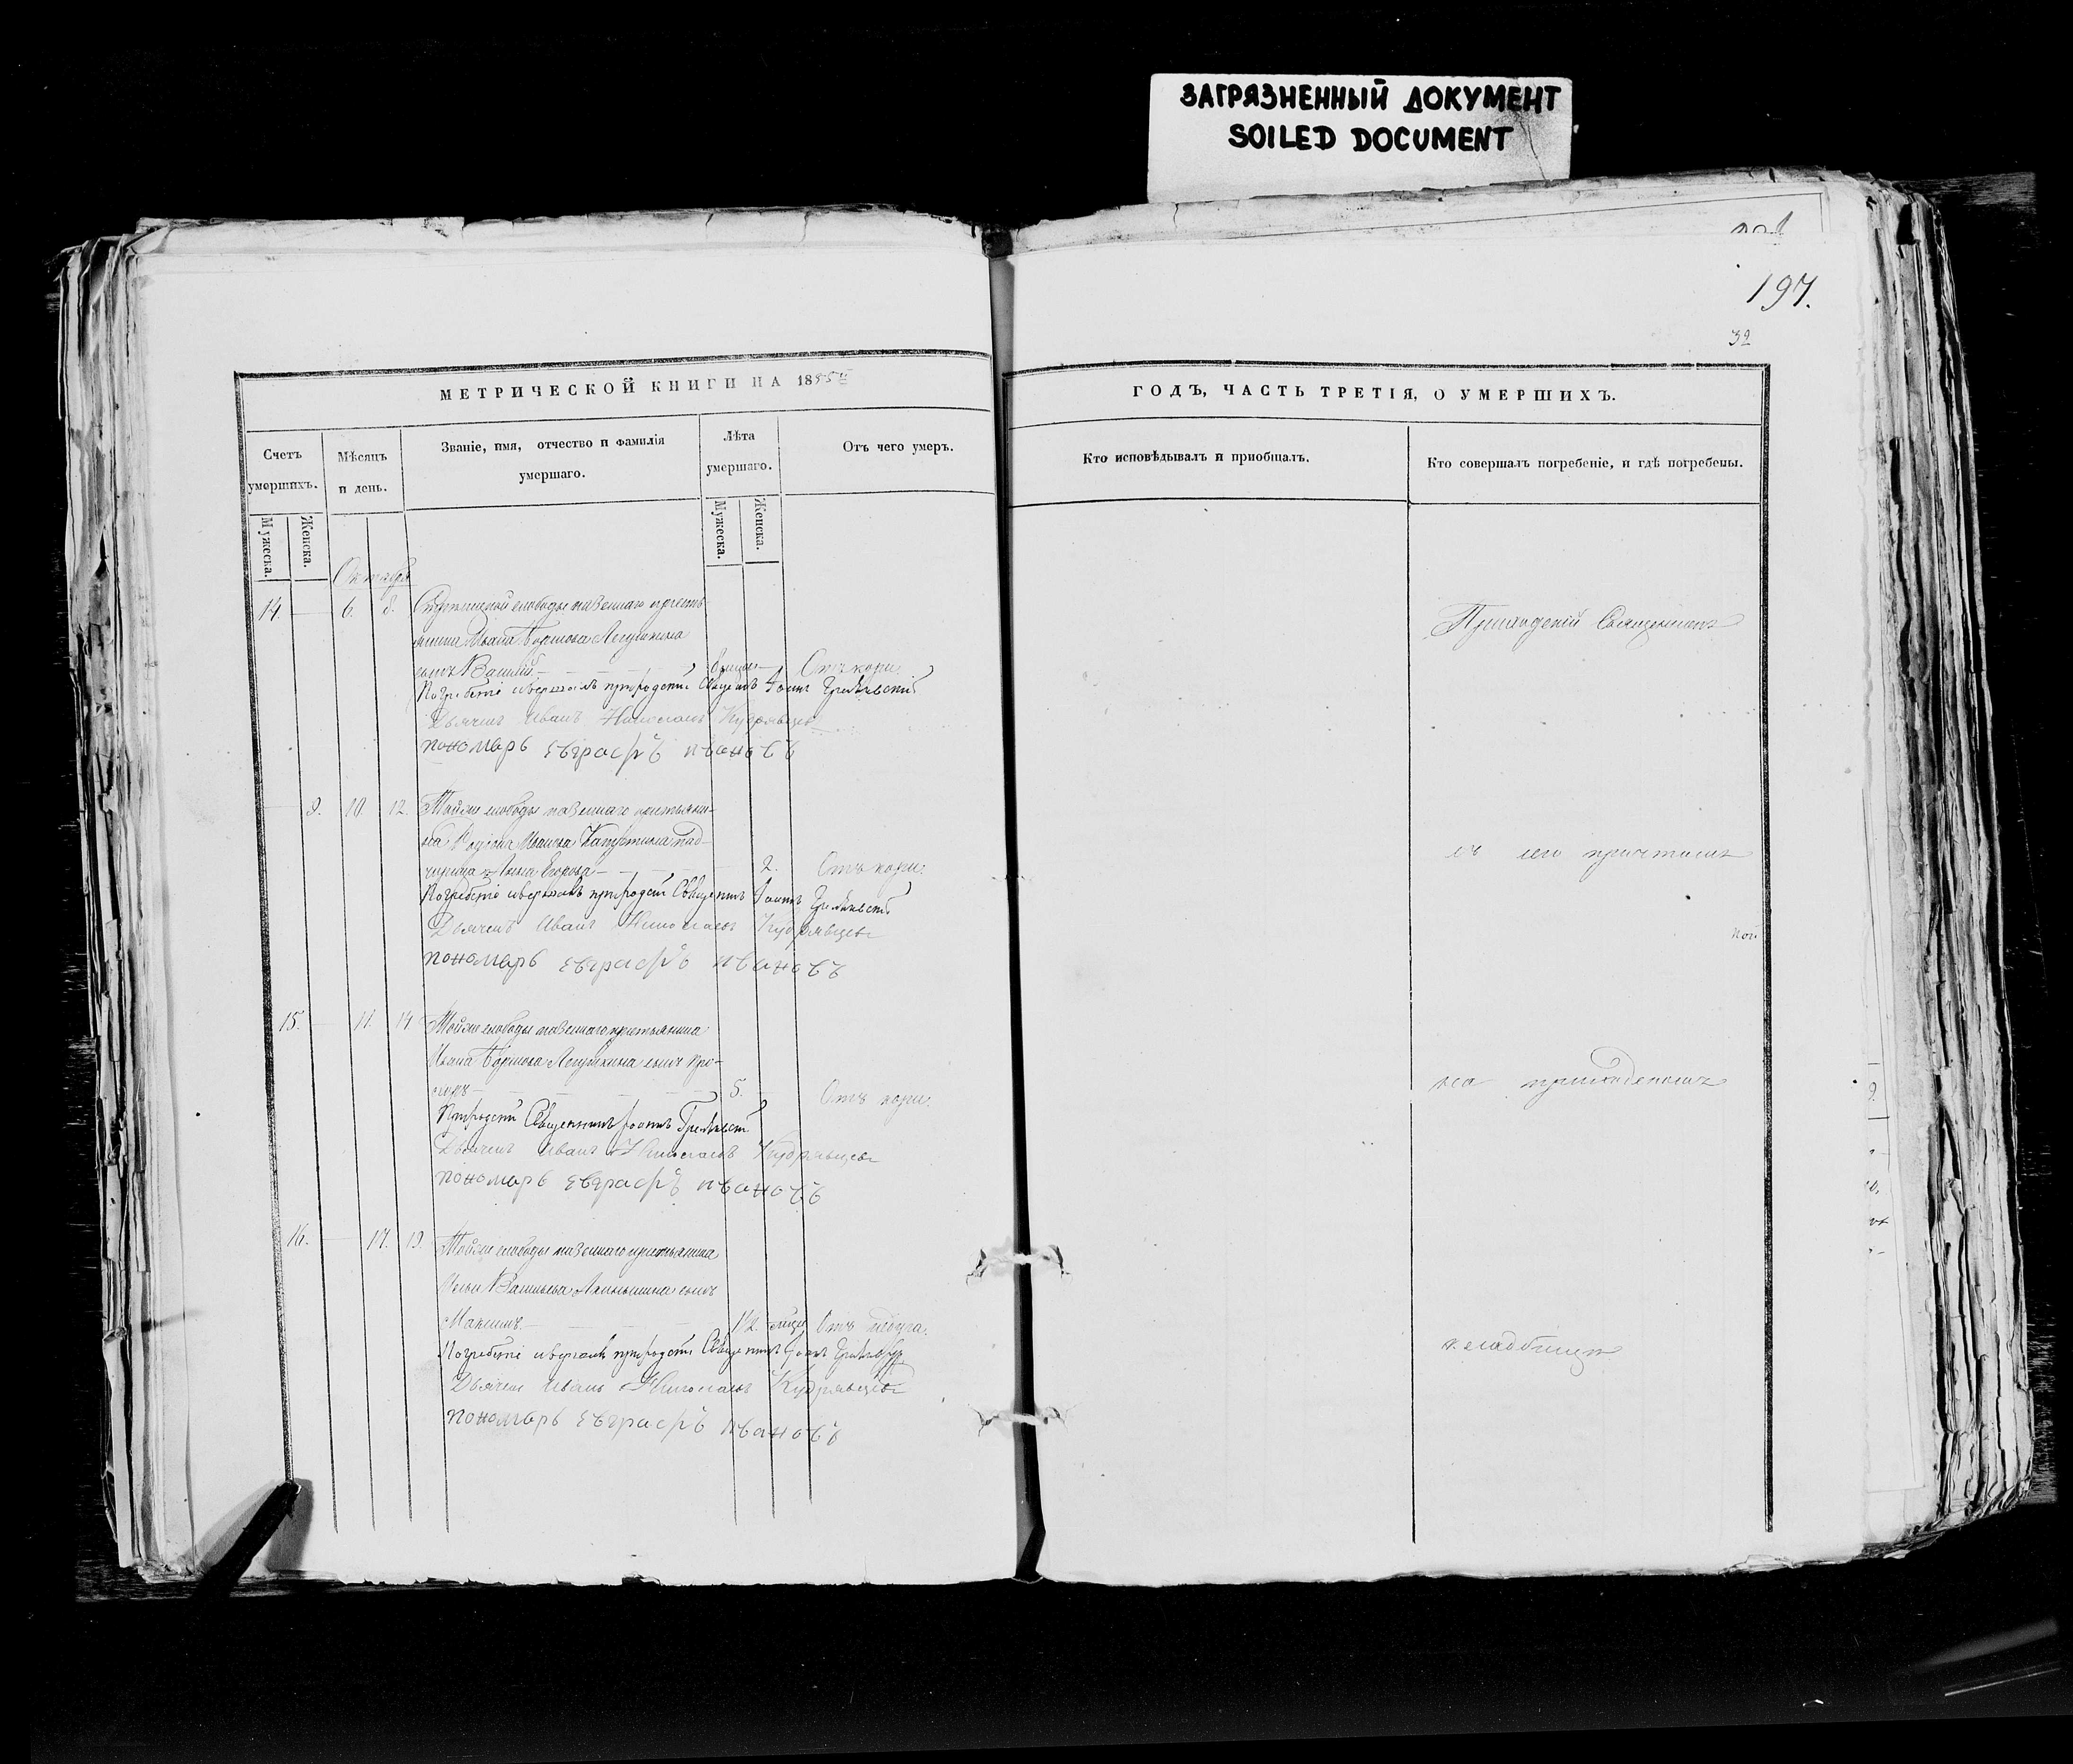 ЗАГРЯЗНЕННЫЙ ДОКУМЕНТ
SOILED DOCUMENT
197.
32
МЕТРИЧЕСКОЙ КНИГИ НА 1855й
Счетъ умершихъ.
Мужеска.
Женска.
Мѣсяцъ и день.
Званіе, имя, отчество и фамилія умершаго.
Лѣта умершаго.
Мужеска.
Женска.
Отъ чего умеръ.
Октябрь
14. — 6. 8.
слободы казеннаго кресть-
янина Ивана
сынъ Василій — Отъ кори
Погребеніе совершалъ приходскій Священникъ Іоаннъ
Дьячекъ Иванъ Николаевъ Кудрявцевъ
пономарь Евграфъ Ивановъ
— 9. 10. 12. Тойже слободы казеннаго крестьяни-
на Родіона пад-
черица Анна Егорова — 2. Отъ кори.
Погребеніе совершалъ приходскій Священникъ Іоаннъ
Дьячекъ Иванъ Николаевъ Кудрявцевъ
пономарь Евграфъ Ивановъ
15. — 11. 14 Тойже слободы казеннаго крестьянина
Ивана сынъ Про-
хоръ — 5. — Отъ кори.
Приходскій Священникъ Іоаннъ
Дьячекъ Иванъ Николаевъ Кудрявцевъ
пономарь Евграфъ Ивановъ
16. — 17. 19. Тойже слободы казеннаго крестьянина
Васильева сынъ
Максимъ — 1/2 Отъ недуга.
Погребеніе совершалъ приходскій Священникъ Іоаннъ
Дьячекъ Иванъ Николаевъ Кудрявцевъ
пономарь Евграфъ Ивановъ
ГОДЪ, ЧАСТЬ ТРЕТІЯ, О УМЕРШИХЪ.
Кто исповѣдывалъ и приобщалъ.
Кто совершалъ погребеніе, и гдѣ погребены.
Приходскій Священникъ
съ причтомъ
на приходскомъ
кладбищѣ